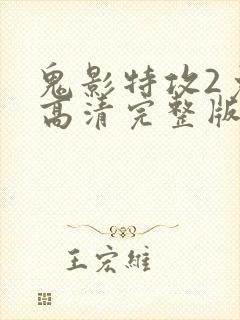 鬼影特攻2
高清完整版
王宏維